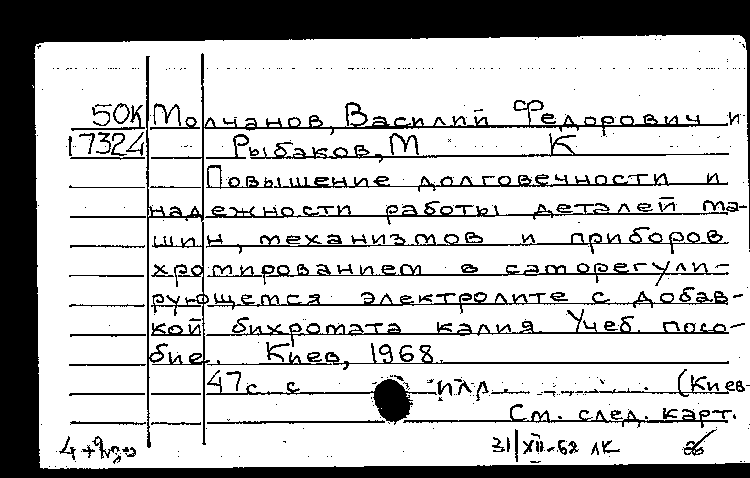 50К Молчанов, Василий Федорович и
17324 Рыбаков, М К
Повышение долговечности и
надежности работы деталей ма-
шин, механизмов и приборов
хромированием в саморегули-
рующемся электролите с добав-
кой бихромата калия. Учеб. посо-
бие. Киев, 1968.
47с. с илл. (Киев-
См. след. карт.
31/XII-62 ЛК